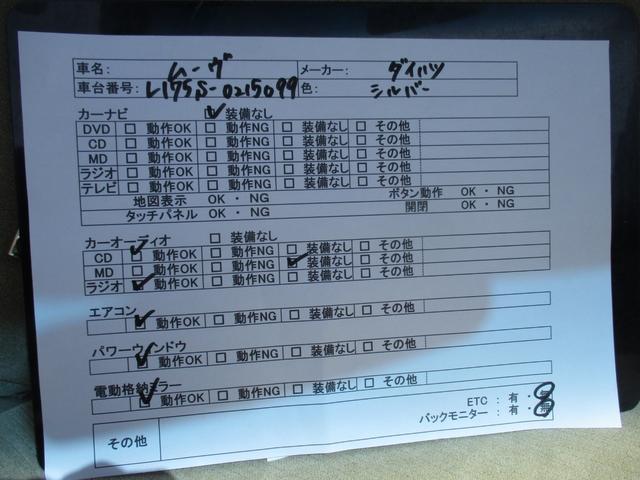 車名: ムーヴ メーカー: ダイハツ
車台番号: L175S-0215099 色: シルバー
カーナビ ☑ 装備なし
DVD □ 動作OK □ 動作NG □ 装備なし □ その他
CD □ 動作OK □ 動作NG □ 装備なし □ その他
MD □ 動作OK □ 動作NG □ 装備なし □ その他
ラジオ □ 動作OK □ 動作NG □ 装備なし □ その他
テレビ □ 動作OK □ 動作NG □ 装備なし □ その他
地図表示 OK ・ NG ボタン動作 OK ・ NG
タッチパネル OK ・ NG 開閉 OK ・ NG
カーオーディオ □ 装備なし
CD ☑ 動作OK □ 動作NG □ 装備なし □ その他
MD □ 動作OK □ 動作NG ☑ 装備なし □ その他
ラジオ ☑ 動作OK □ 動作NG □ 装備なし □ その他
エアコン
☑ 動作OK □ 動作NG □ 装備なし □ その他
パワーウィンドウ
☑ 動作OK □ 動作NG □ 装備なし □ その他
電動格納ミラー
☑ 動作OK □ 動作NG □ 装備なし □ その他
ETC : 有 ・ 無
バックモニター : 有 ・ 無
その他